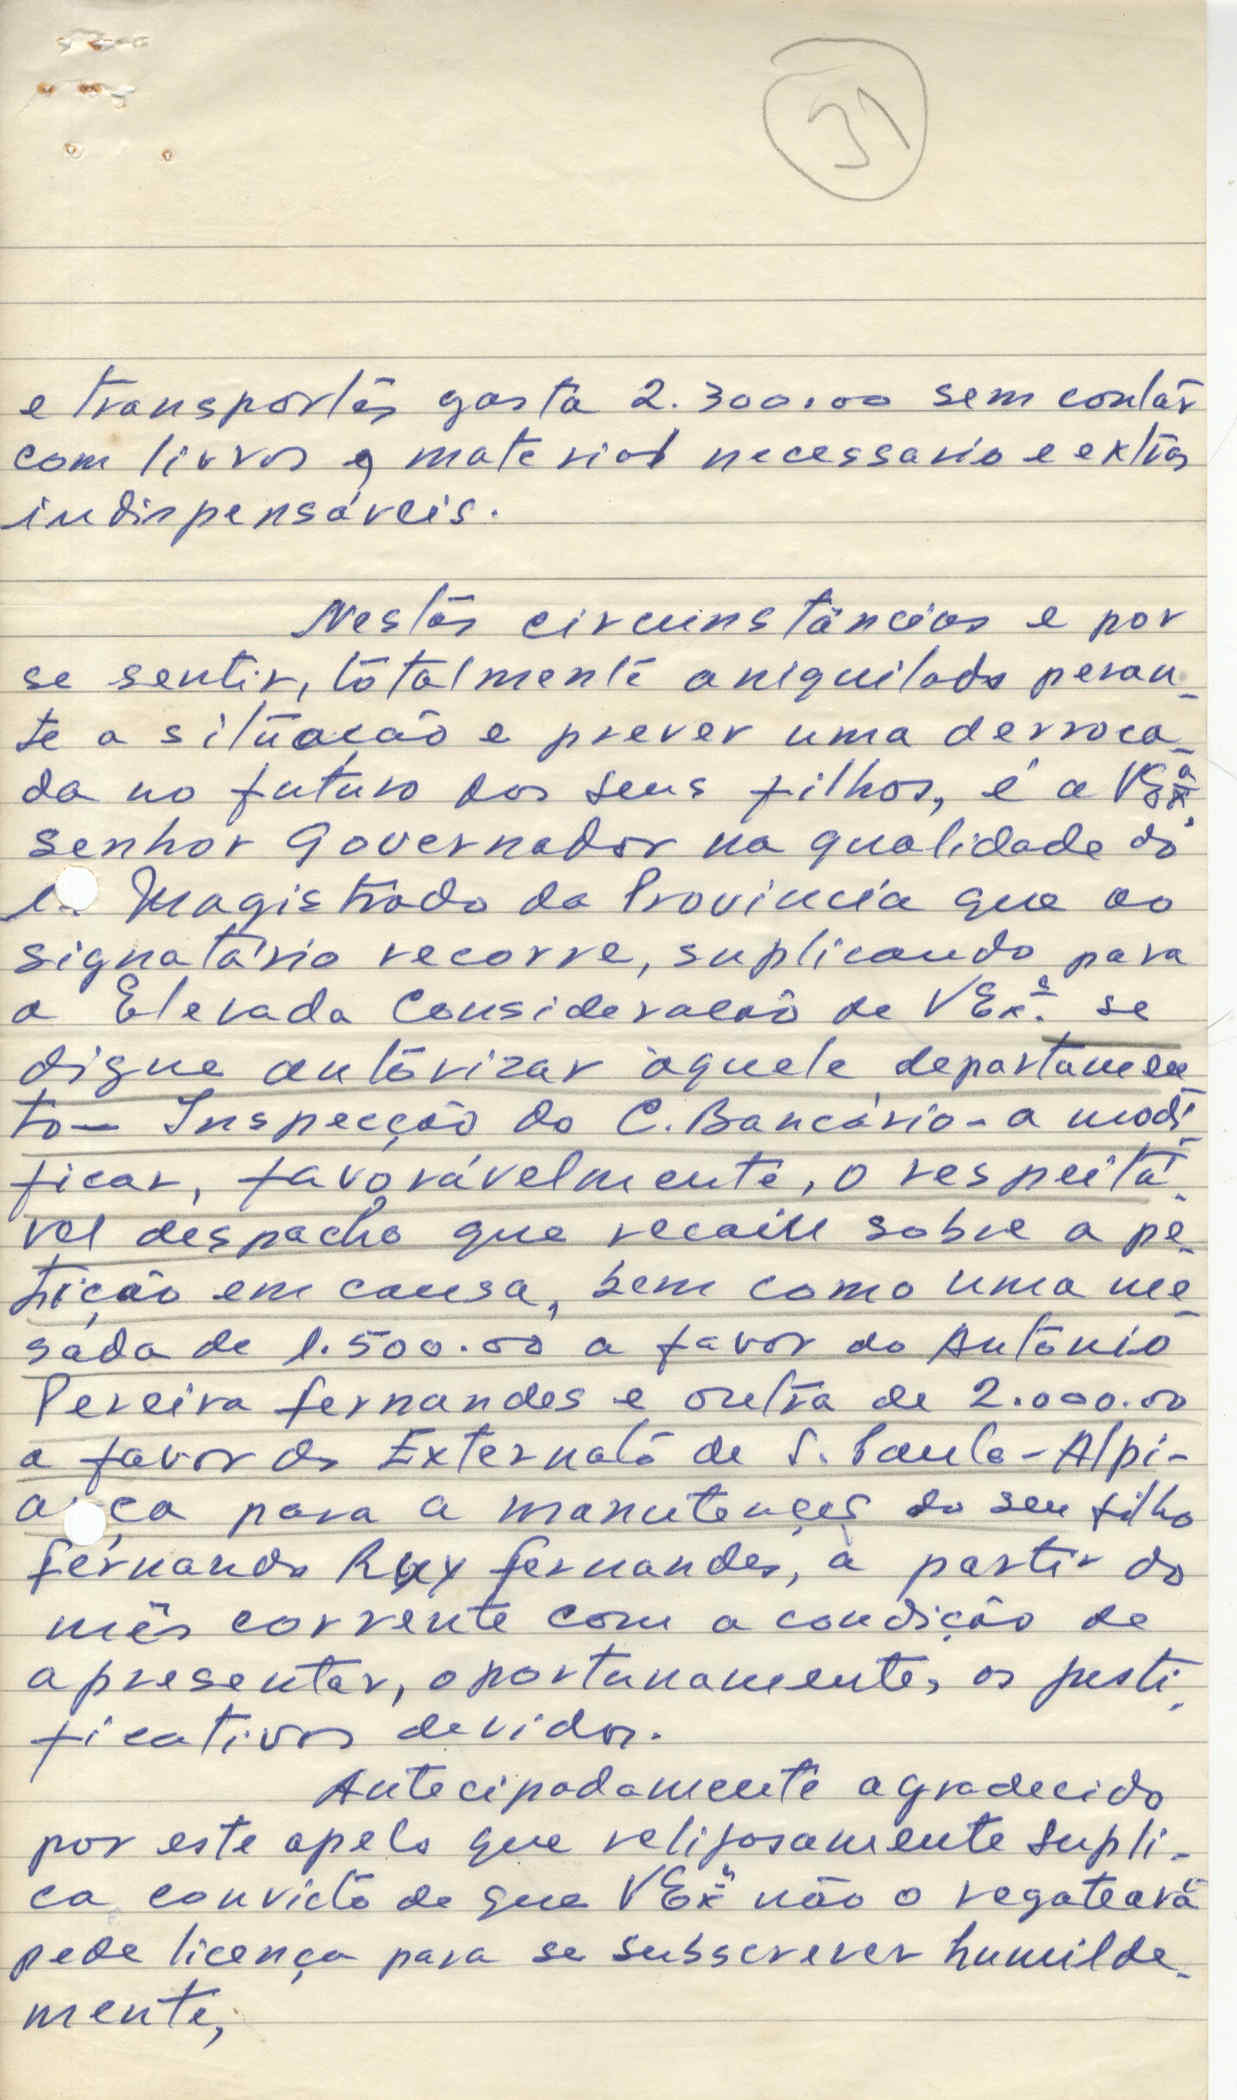 31
e transportes gasta 2.300.00 sem contar
com livros e material necessario e extras
indispensáveis.
Nestas circunstâncias e por
se sentir, totalmente aniquilado peran-
te a situação e prever uma derroca-
da no futuro dos seus filhos, é a VExª
senhor Governador na qualidade do
1.º Magistrado da Provincia que ao
signatário recorre, suplicando para
a Elevada Consideração de VExª. se
digne autorizar àquele departamen
to - Inspecção do C. Bancário - a modi-
ficar, favorávelmente, o respeitá-
vel despacho que recaiu sobre a pe-
tição em causa, bem como uma me-
sada de 1.500.00 a favor do António
Pereira Fernandes e outra de 2.000.00
a favor do Externato de S. Paulo - Alpi-
arça para a manutenção do seu filho
Fernando Ruy Fernandes, a partir do
mês corrente com a condição de
apresentar, oportunamente, os justi-
ficativos devidos.
Antecipadamente agradecido
por este apelo que religiosamente supli-
ca convicto de que VExª não o regateará
pede licença para se subscrever humilde-
mente,